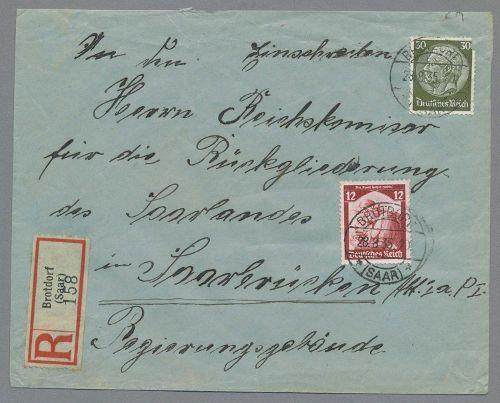 An den Einschreiben
Herrn Reichskomisar
für die Rückgliederung
des Saarlandes
in Saarbrücken
Regierungsgebäude
30 30
Deutsches Reich
12 12
Deutsches Reich
BROTDORF
28.3.35
(SAAR)
Brotdorf
(Saar)
158
R